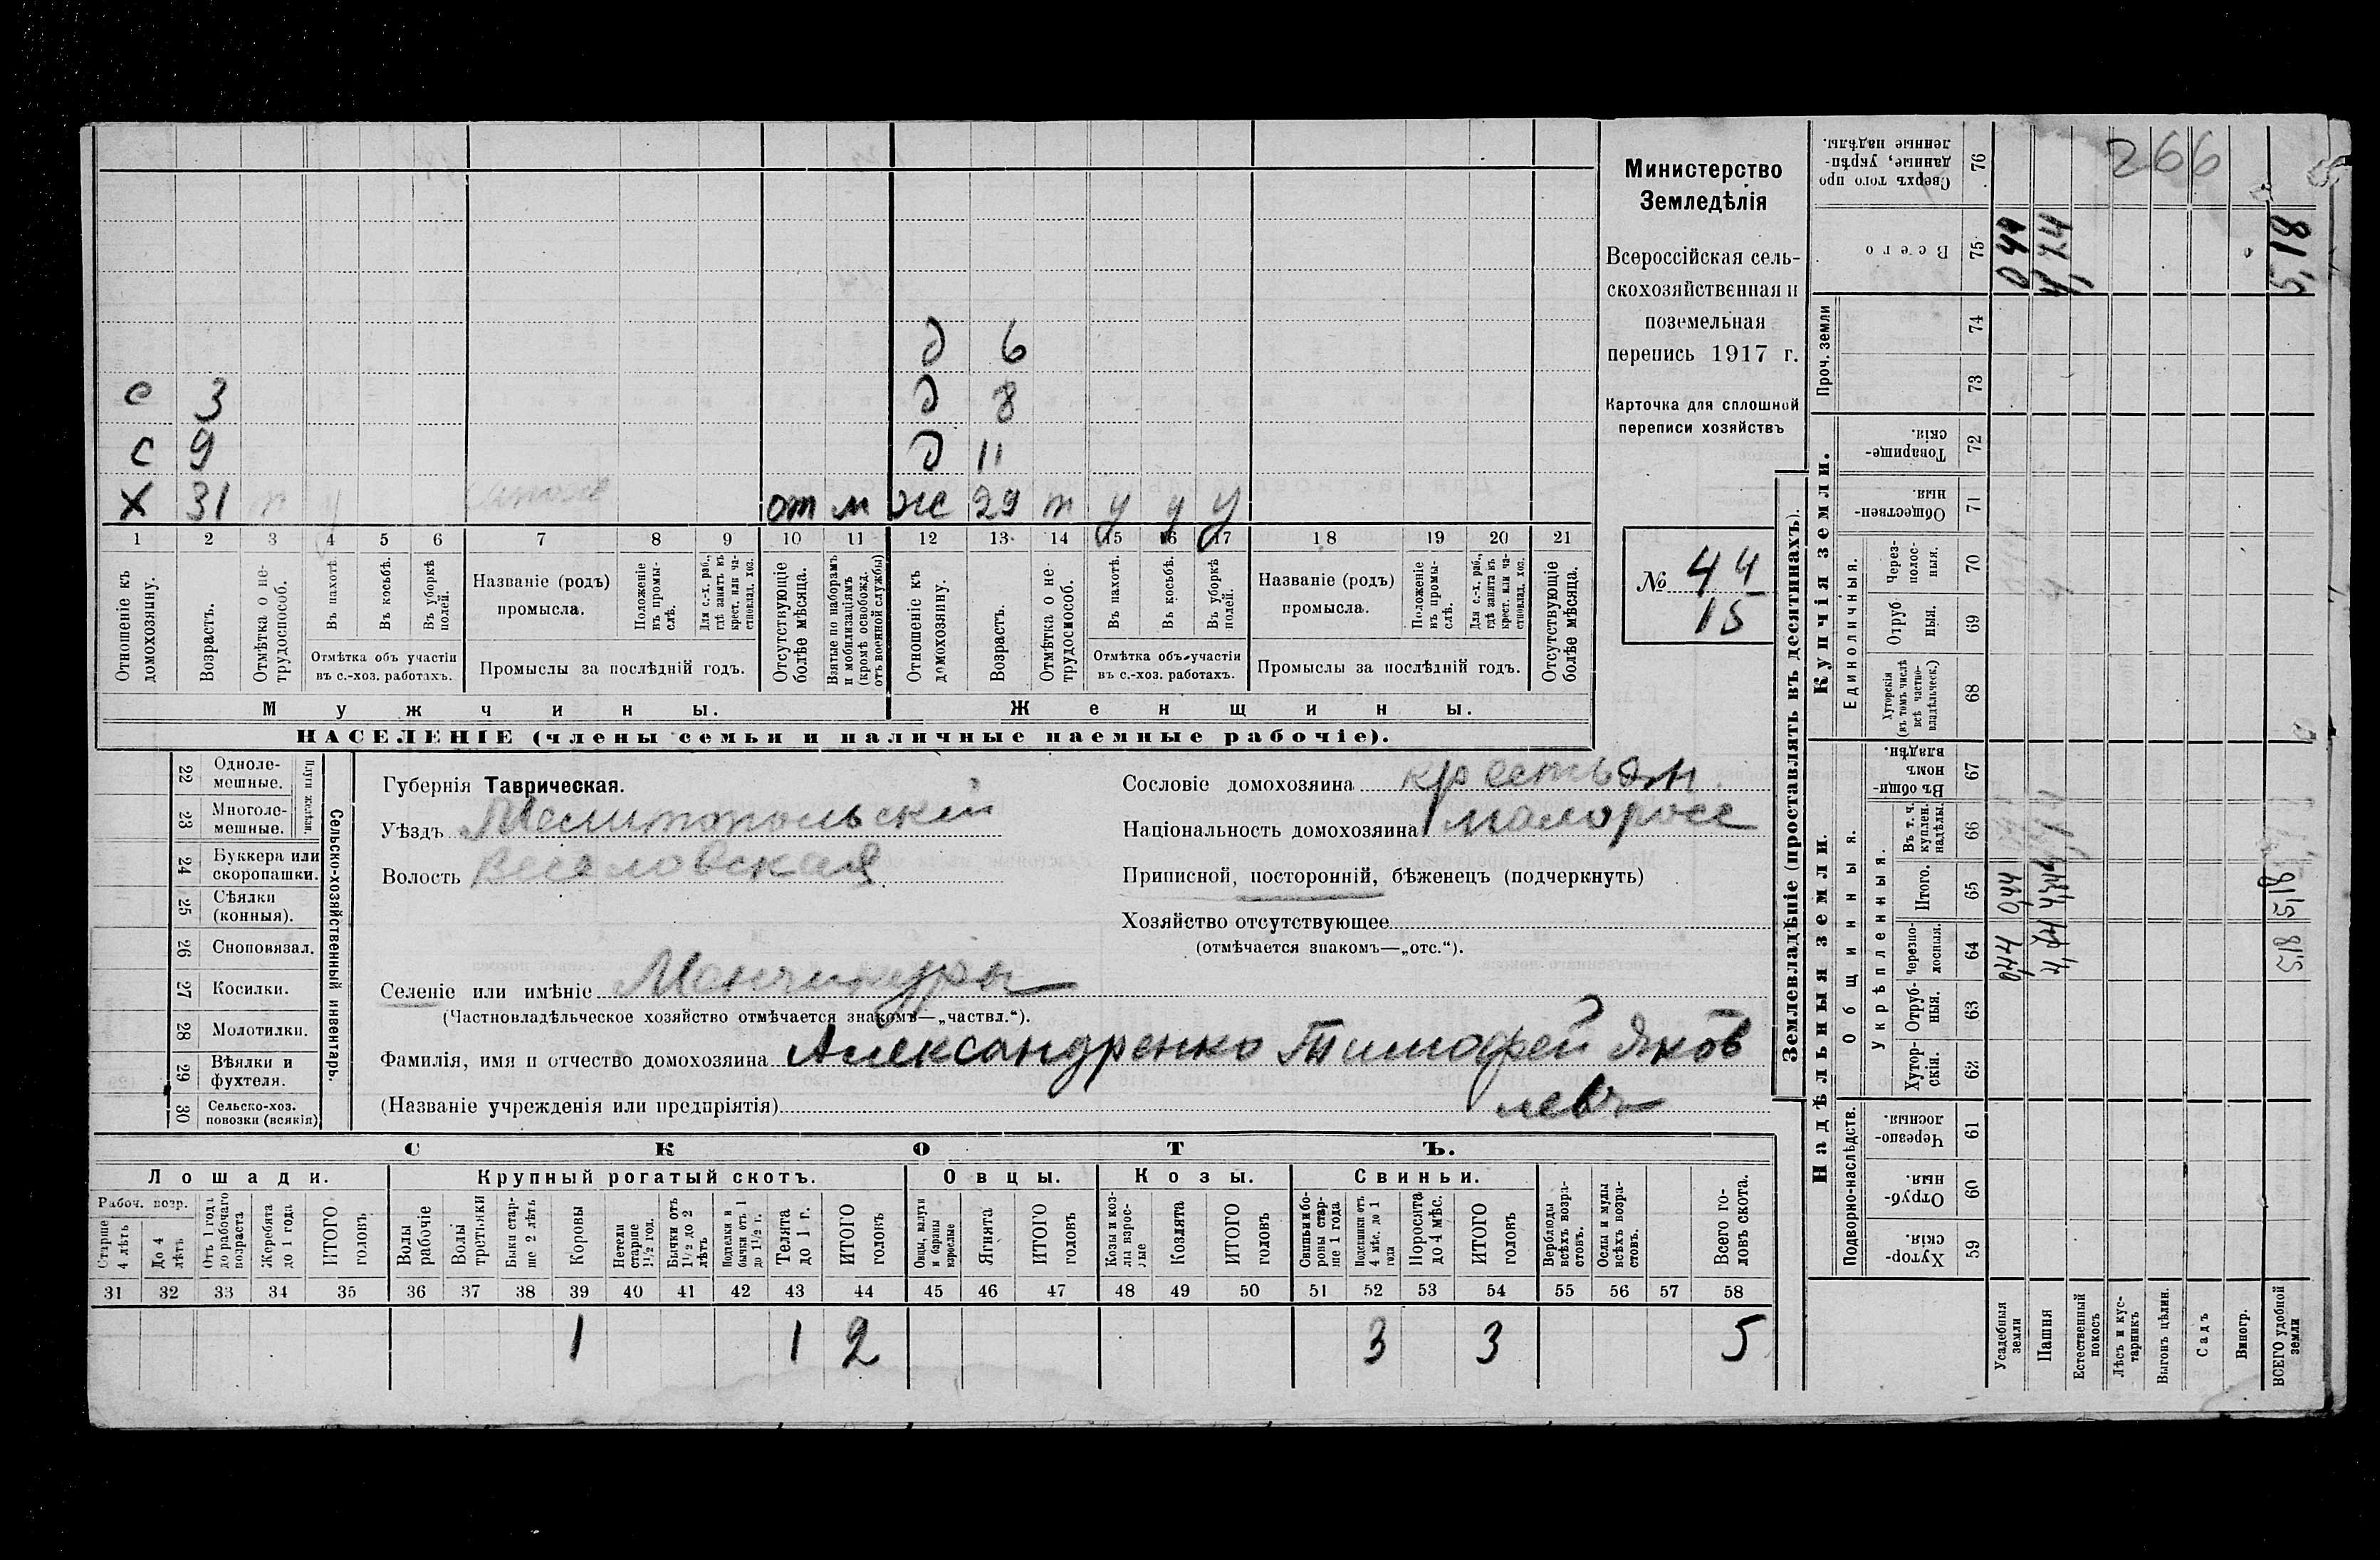 д 6
с 3 д 8
с 9 д 11
Х 31 от м ж 29 т у у у
1 2 3 4 5 6 7 8 9 10 11 12 13 14 15 16 17 18 19 20 21
Отношеніе къ домохозяину.
Возрастъ.
Отмѣтка о нетрудоспособ.
Въ пахотѣ.
Въ косьбѣ.
Въ уборкѣ полей.
Отмѣтка объ участіи
въ с.-хоз. работахъ.
Названіе (родъ)
промысла.
Положеніе въ промыслѣ.
Для с.-х. раб., гдѣ занятъ въ крест. или частновлад. хоз.
Промыслы за послѣдній годъ.
Отсутствующіе болѣе мѣсяца.
Взятые по наборамъ и мобилизаціямъ (кромѣ освобожд. отъ военной службы)
Отношеніе къ домохозяину.
Возрастъ.
Отмѣтка о нетрудоспособ.
Въ пахотѣ.
Въ косьбѣ.
Въ уборкѣ полей.
Отмѣтка объ участіи
въ с.-хоз. работахъ.
Названіе (родъ)
промысла.
Положеніе въ промыслѣ.
Для с.-х. раб., гдѣ занята въ крест. или частновлад. хоз.
Промыслы за послѣдній годъ.
Отсутствующіе болѣе мѣсяца.
Мужчины. Женщины.
НАСЕЛЕНІЕ (члены семьи и наличные наемные рабочіе).
Министерство
Земледѣлія
Всероссійская сель-
скохозяйственная и
поземельная
перепись 1917 г.
Карточка для сплошной
переписи хозяйствъ
№ 44
15
22 Одноле-
мешные.
23 Многоле-
мешные.
Плуги желѣзн.
24 Буккера или
скоропашки.
25 Сѣялки
(конныя).
26 Сноповязал.
27 Косилки.
28 Молотилки.
29 Вѣялки и
фухтеля.
30 Сельско-хоз.
повозки (всякія)
Сельско-хозяйственный инвентарь.
Губернія Таврическая.
Уѣздъ Мелитопольскій
Волость Веселовская
Сословіе домохозяина крестьян.
Національность домохозяина малоросс
Приписной, посторонній, бѣженецъ (подчеркнуть)
Хозяйство отсутствующее
(отмѣчается знакомъ—„отс.“).
Селеніе или имѣніе Манчикуры
(Частновладѣльческое хозяйство отмѣчается знакомъ—„частвл.“).
Фамилія, имя и отчество домохозяина Александренко Тимофей Яков
левъ
(Названіе учрежденія или предпріятія)
СКОТЪ.
Лошади. Крупный рогатый скотъ. Овцы. Козы. Свиньи.
Рабоч. возр.
Старше 4 лѣтъ
До 4 лѣтъ
Отъ 1 года до рабочаго возраста
Жеребята до 1 года
ИТОГО головъ
Волы рабочіе
Волы третьяки
Быки старше 2 лѣтъ
Коровы
Нетели старше 1½ год.
Бычки отъ 1½ до 2 лѣтъ
Подтелки и бычки отъ 1 до 1½ г.
Телята до 1 г.
ИТОГО головъ
Овцы, валухи и бараны взрослые
Ягнята
ИТОГО головъ
Козы и козлы взрослые
Козлята
ИТОГО головъ
Свиньи и бороны старше 1 года
Подсвинки отъ 4 мѣс. до 1 года
Поросята до 4 мѣс.
ИТОГО головъ
Верблюды всѣхъ возрастовъ.
Ослы и мулы всѣхъ возрастовъ.
Всего головъ скота.
31 32 33 34 35 36 37 38 39 40 41 42 43 44 45 46 47 48 49 50 51 52 53 54 55 56 57 58
1 1 2 3 3 5
Землевладѣніе (проставлять въ десятинахъ).
Сверхъ того проданные, укрѣпленные надѣлы. 76
266
Всего 75 044 4,74 5,18
Проч. земли 74 73
Купчія земли.
Товарищескія. 72
Общественныя. 71
Единоличныя.
Черезполосныя. 70
Отрубныя. 69
Хуторскія (въ томъ числѣ всѣ частновладѣльческ.) 68
Надѣльныя земли.
Общинныя.
Въ общинномъ владѣн. 67
Укрѣпленныя.
Въ т. ч. куплен. надѣлы. 66
Итого. 65 044 4,74 5,18
Черезполосныя. 64 044 4,74 5,18
Отрубныя. 63
Хуторскія. 62
Подворно-наслѣдств.
Черезполосныя. 61
Отрубныя. 60
Хуторскія. 59
Усадебныя земли
Пашня
Естественный покосъ
Лѣсъ и кустарникъ
Выгонъ цѣлин.
Садъ
Виногр.
ВСЕГО удобной земли